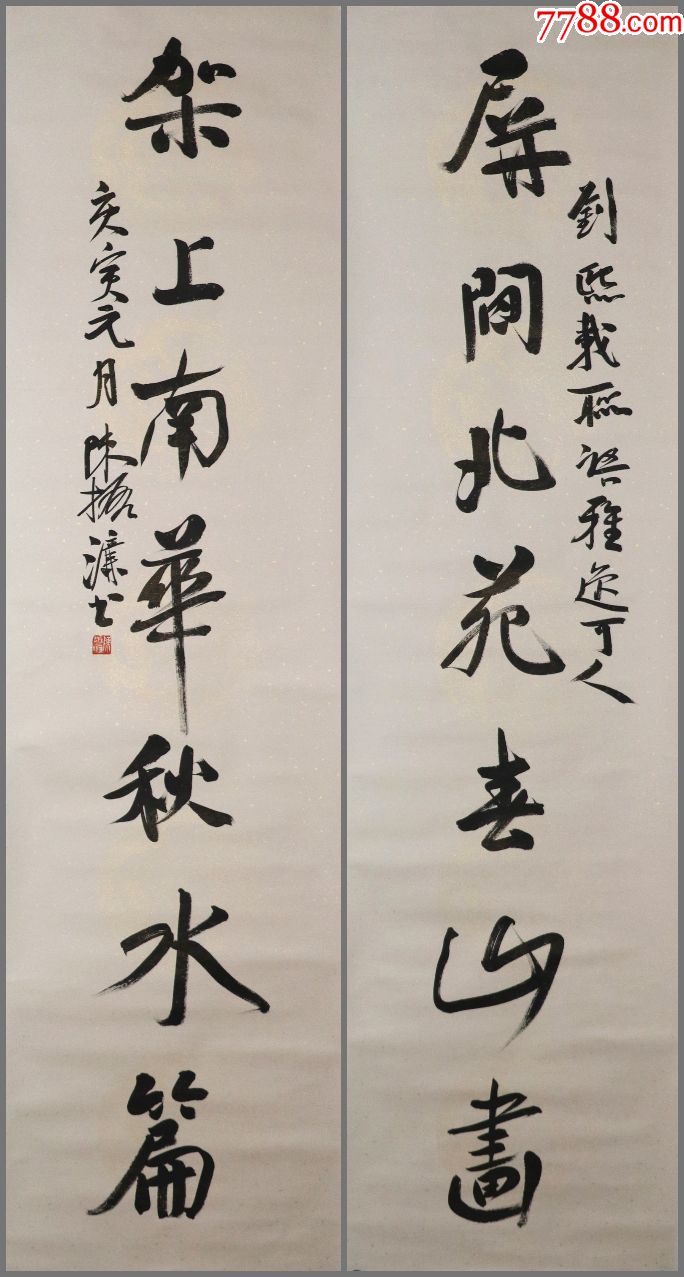 7788.com
屏間北苑春山畫
劉熙載聯語雅逸可人
架上南華秋水篇
庚寅元月陳振濂書